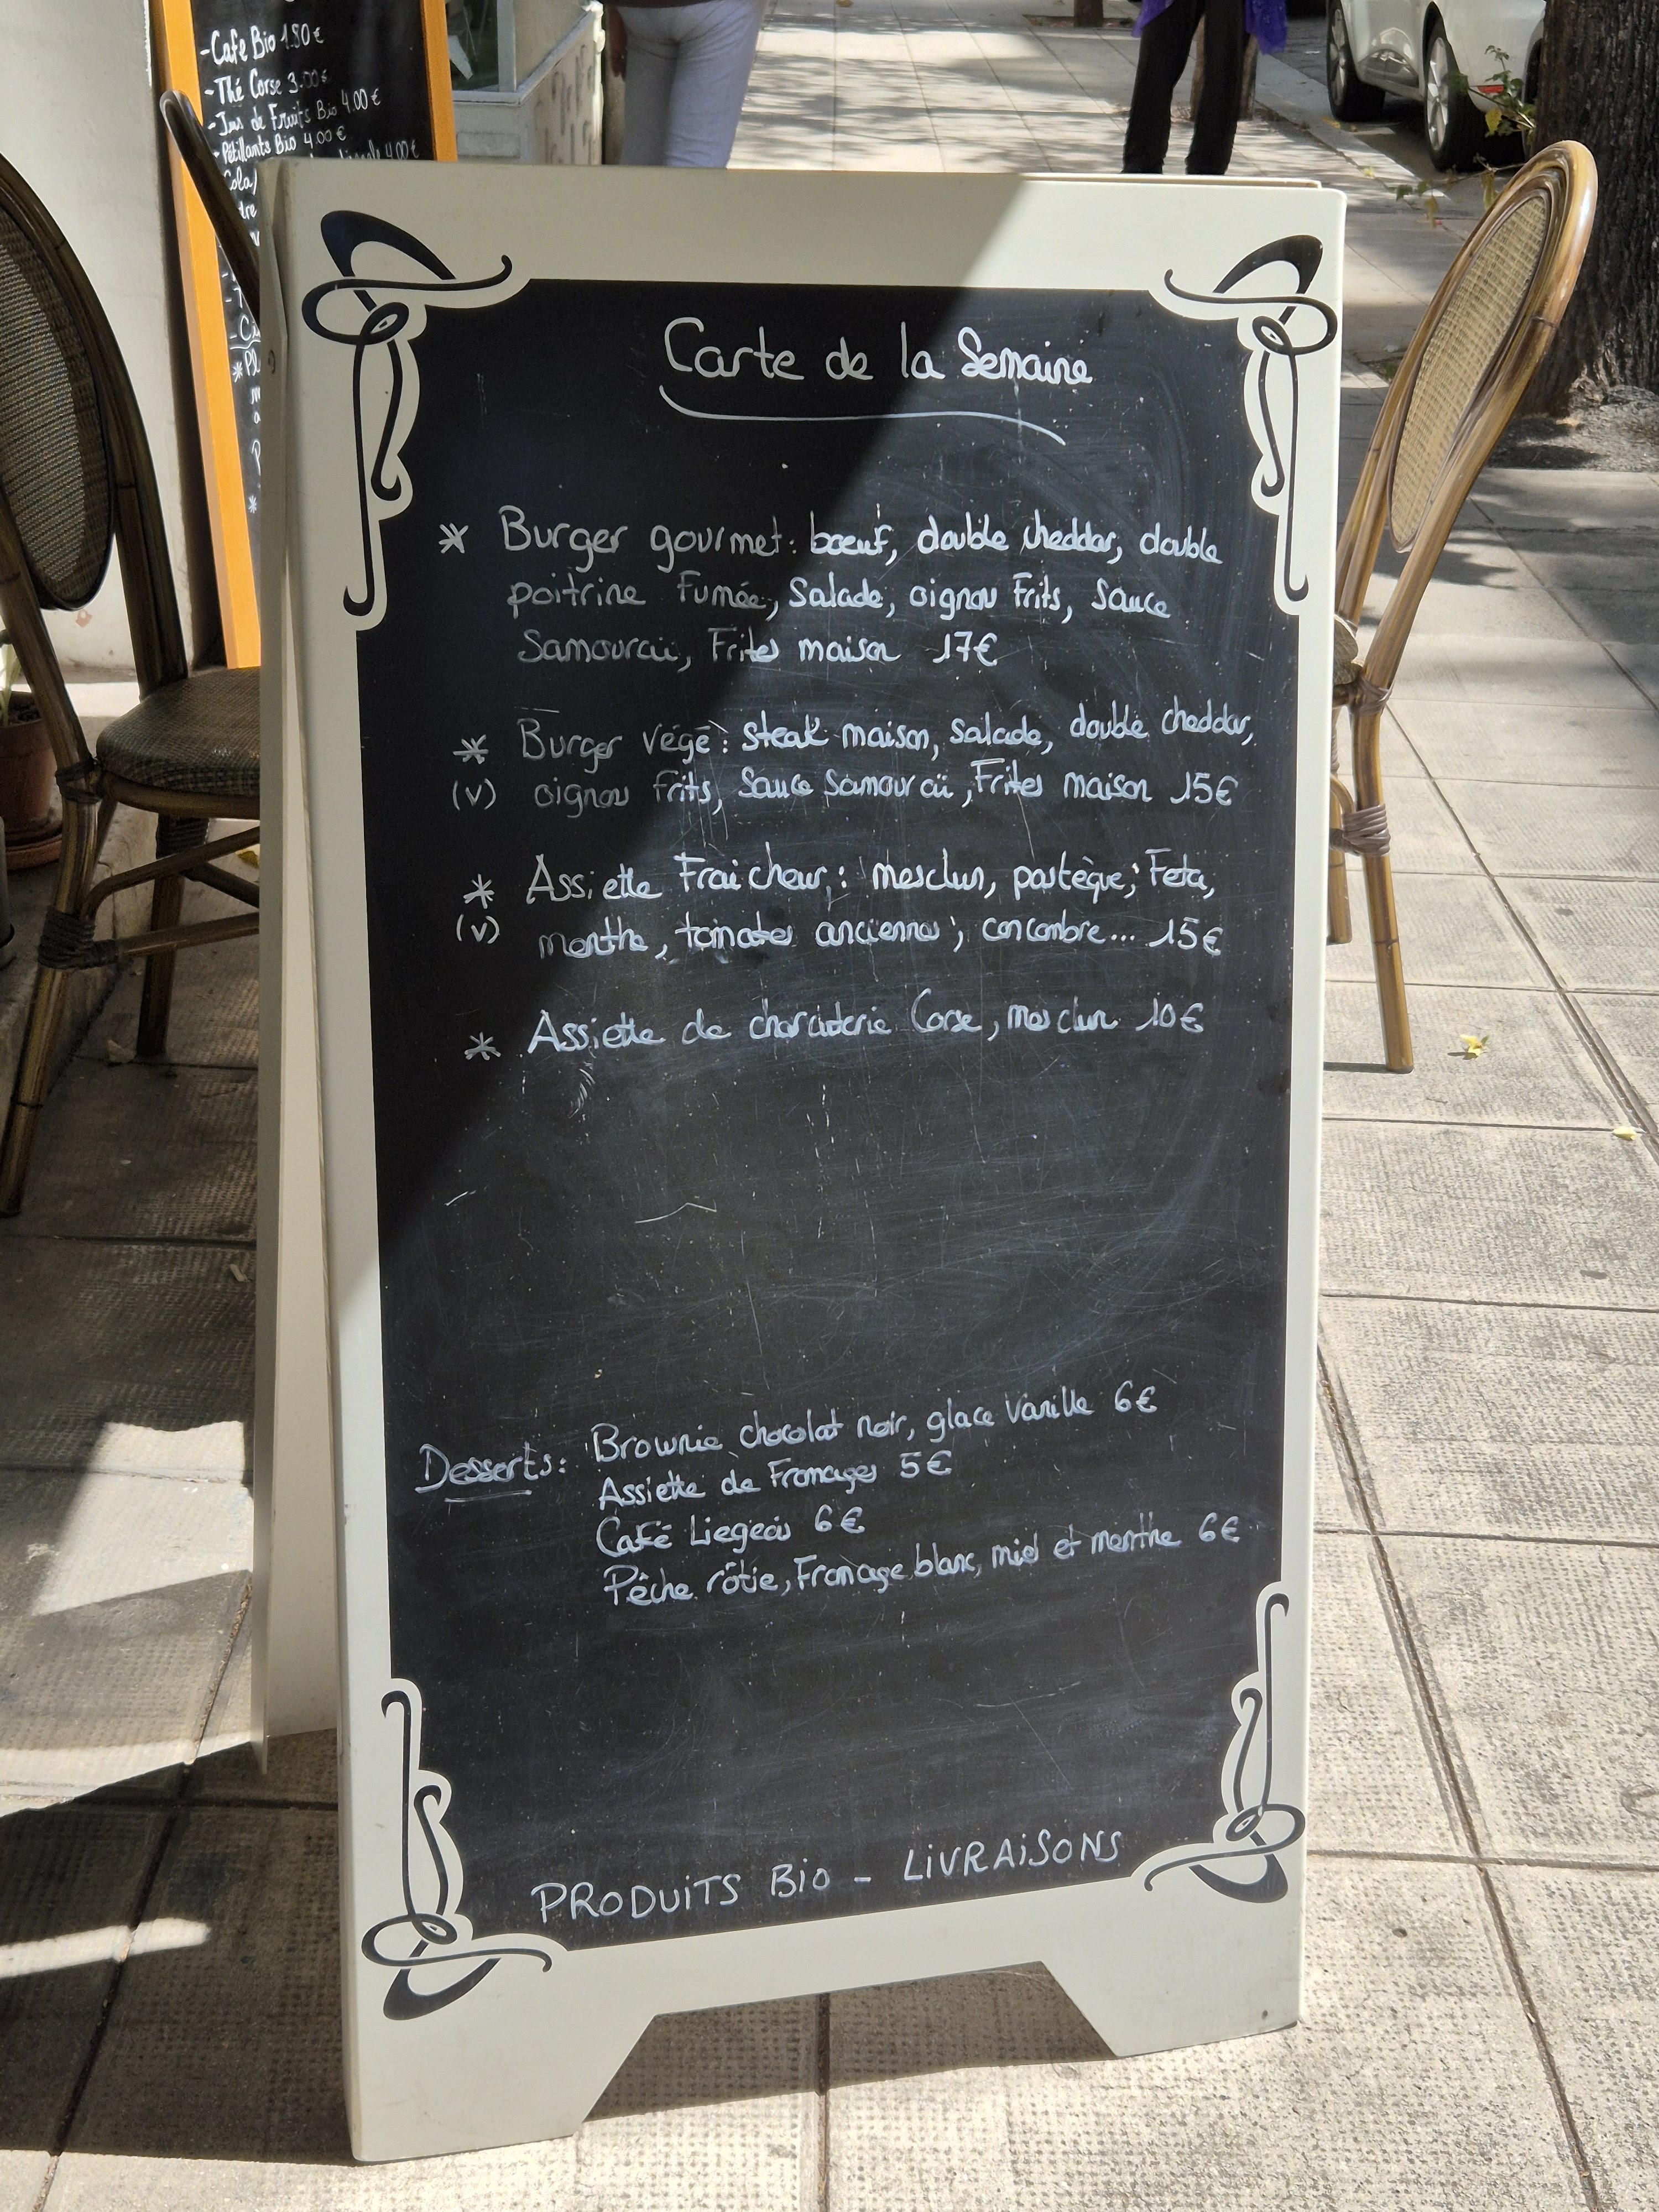 -Café Bio 1.50€
-Thé Corse 3.00€
-Jus de Fruits Bio 4.00€
Pétillants Bio 4.00€
4.00€
Cola/
Carte de la Semaine
* Burger gourmet: bœuf, double cheddar, double
poitrine Fumée, Salade, oignon Frits, Sauce
Samouraï, Frites maison 17€
* Burger végé: steak maison, salade, double cheddar,
(v) oignon frits, Sauce Samouraï, Frites maison 15€
* Assiette Fraicheur: mesclun, pastèque, Feta,
(v) menthe, tomates anciennes, concombre... 15€
* Assiette de charcuterie Corse, mesclun 10€
Desserts: Brownie chocolat noir, glace Vanille 6€
Assiette de Fromages 5€
Café Liegeois 6€
Pêche rôtie, Fromage blanc, miel et menthe 6€
PRODUITS Bio - LiVRAiSONS